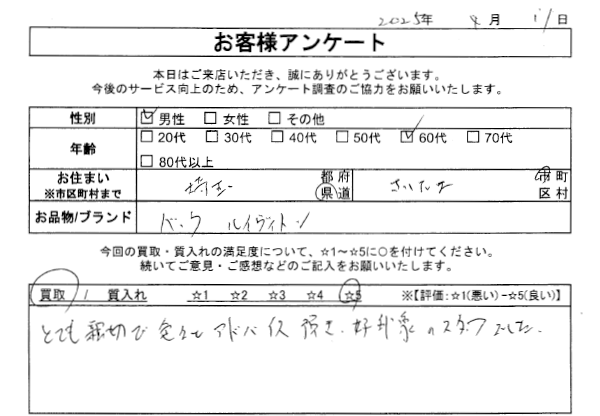 2025年 4月 11日
お客様アンケート
本日はご来店いただき、誠にありがとうございます。
今後のサービス向上のため、アンケート調査のご協力をお願いいたします。
性別 ☑男性 □女性 □その他
年齢 □20代 □30代 □40代 □50代 ☑60代 □70代
□80代以上
お住まい
※市区町村まで 埼玉 都府県道 さいたま 市町区村
お品物/ブランド バック ルイヴィトン
今回の買取・質入れの満足度について、☆1～☆5に○を付けてください。
続いてご意見・ご感想などのご記入をお願いいたします。
買取 / 質入れ ☆1 ☆2 ☆3 ☆4 ☆5 ※【評価:☆1(悪い)-☆5(良い)】
とても親切で色々とアドバイス頂き、好印象のスタッフでした。